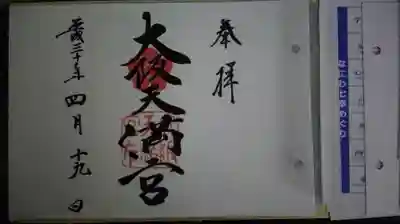 なにわ七幸めぐり
奉拝
大阪天満宮
平成三十年四月十九日